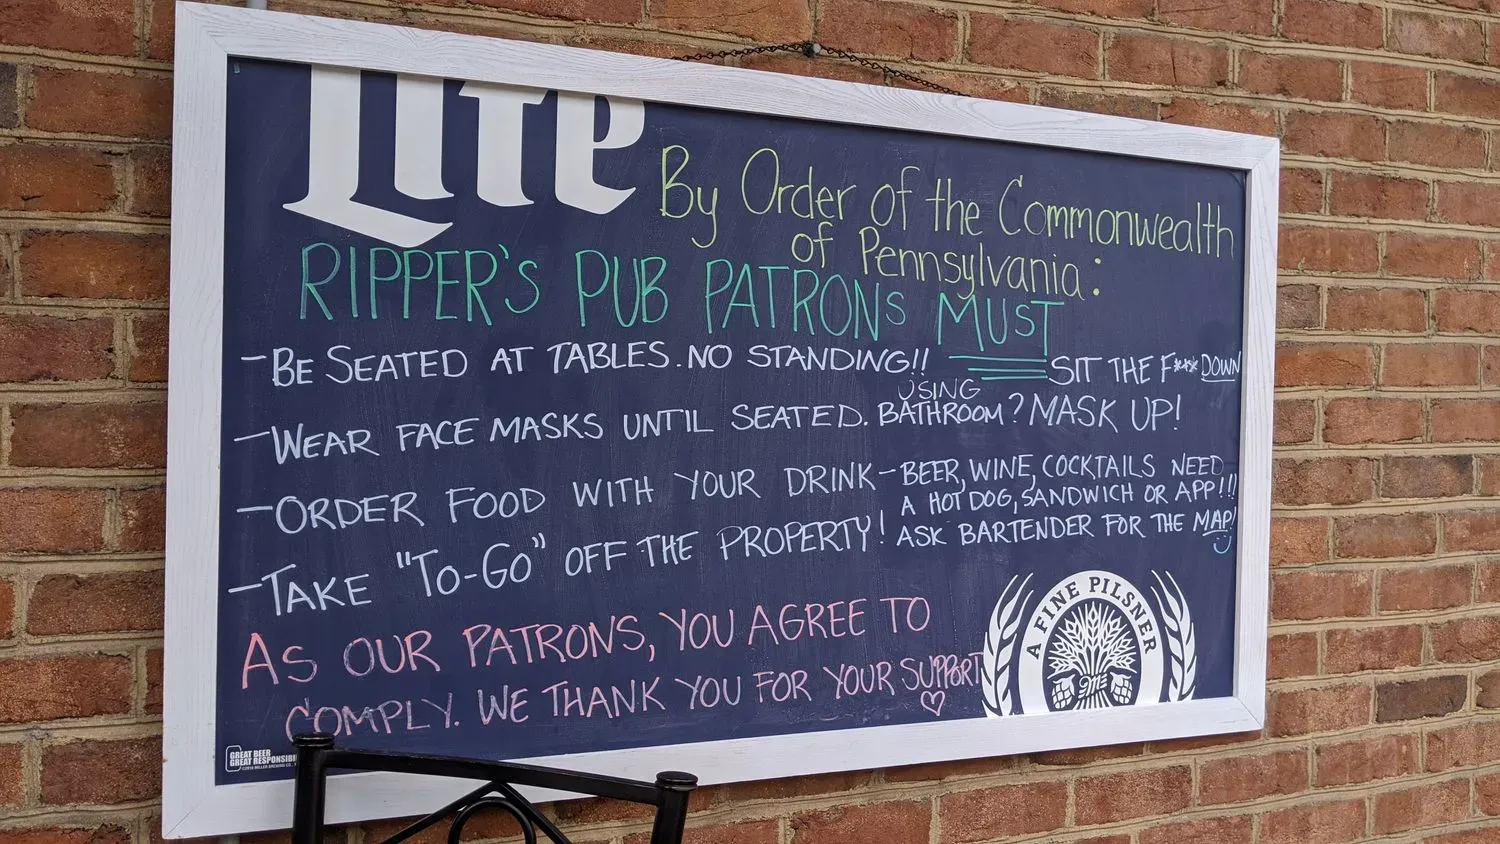 Lite
By Order of the Commonwealth
of Pennsylvania:
RIPPER'S PUB PATRONS MUST
-BE SEATED AT TABLES. NO STANDING!! SIT THE F*** DOWN
-WEAR FACE MASKS UNTIL SEATED. USING BATHROOM? MASK UP!
-ORDER FOOD WITH YOUR DRINK-BEER, WINE, COCKTAILS NEED
A HOT DOG, SANDWICH OR APP!!!
-TAKE "TO-GO" OFF THE PROPERTY! ASK BARTENDER FOR THE MAP!
AS OUR PATRONS, YOU AGREE TO
COMPLY. WE THANK YOU FOR YOUR SUPPORT
A FINE PILSNER
GREAT BEER
GREAT RESPONSIBI